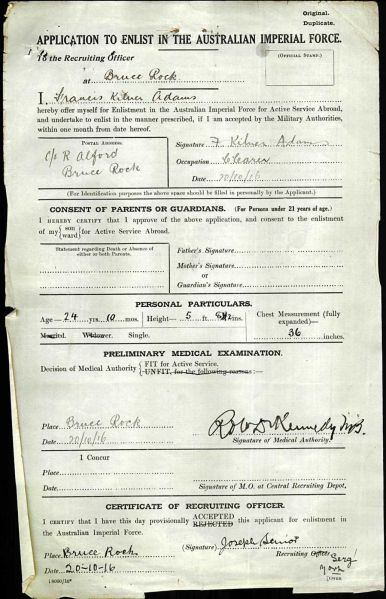 Original.
Duplicate.
APPLICATION TO ENLIST IN THE AUSTRALIAN IMPERIAL FORCE.
To the Recruiting Officer
(OFFICIAL STAMP.)
at Bruce Rock
I, Francis Kilner Adams
hereby offer myself for Enlistment in the Australian Imperial Force for Active Service Abroad,
and undertake to enlist in the manner prescribed, if I am accepted by the Military Authorities,
within one month from date hereof.
POSTAL ADDRESS:
c/o R Alford
Bruce Rock
Signature F Kilner Adams
Occupation Clearer
Date 20/10/16
(For Identification purposes the above space should be filled in personally by the Applicant.)
CONSENT OF PARENTS OR GUARDIANS. (For Persons under 21 years of age.)
I HEREBY CERTIFY that I approve of the above application, and consent to the enlistment
of my {son ward} for Active Service Abroad.
Statement regarding Death or Absence of
either or both Parents.
Father's Signature
Mother's Signature
or
Guardian's Signature
PERSONAL PARTICULARS.
Age—24 yrs. 10 mos. Height—5 ft. 8½ ins.
Chest Measurement (fully
expanded)—
36 inches.
Married. Widower. Single.
PRELIMINARY MEDICAL EXAMINATION.
Decision of Medical Authority {FIT for Active Service.
UNFIT, for the following reasons:—
Place Bruce Rock
Date 20/10/16
Kennedy
Signature of Medical Authority.
I Concur
Place
Date
Signature of M.O. at Central Recruiting Depot.
CERTIFICATE OF RECRUITING OFFICER.
I CERTIFY that I have this day provisionally ACCEPTED REJECTED this applicant for enlistment in
the Australian Imperial Force.
(Signature) Joseph Senior
Place Bruce Rock
Recruiting Officer Serg
York
Date 20-10-16
[OVER